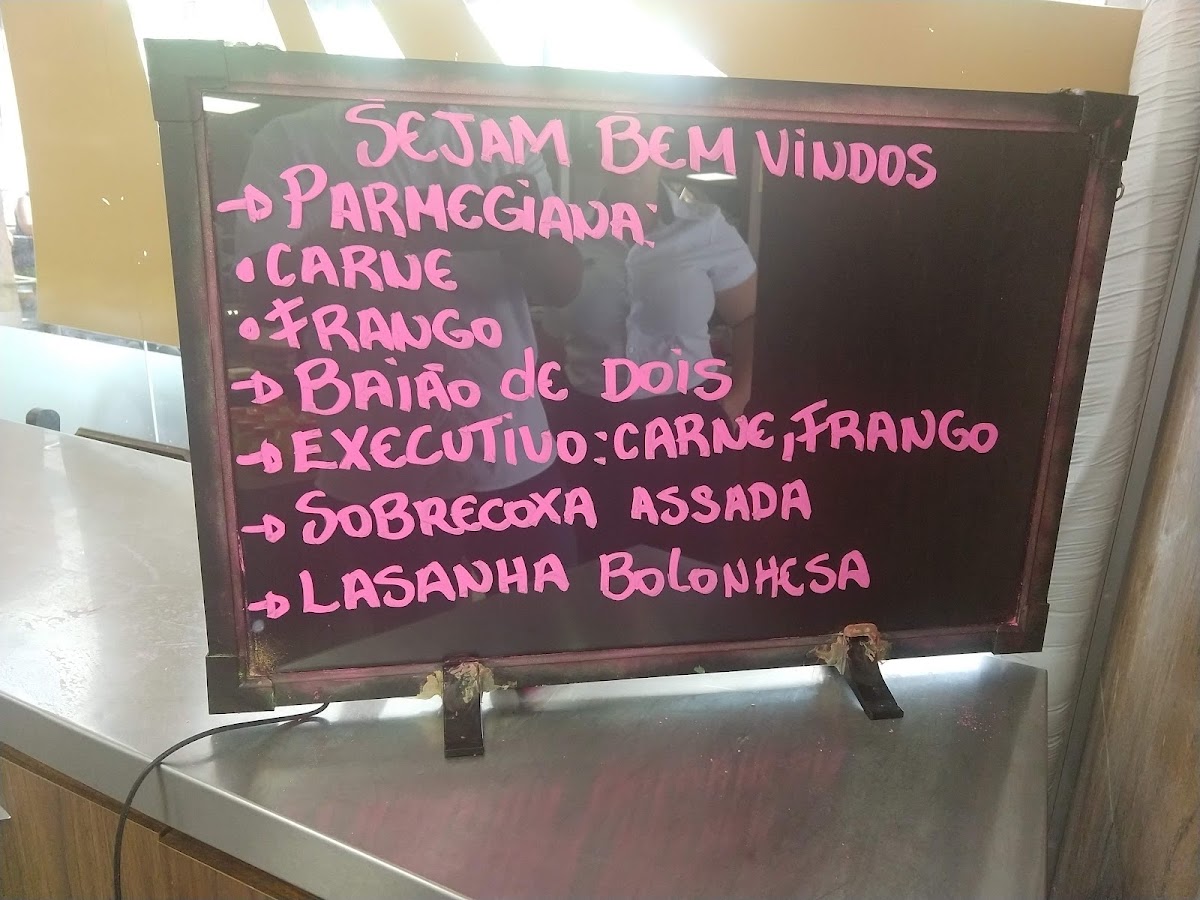 SEJAM BEM VINDOS
→ PARMEGIANA:
• CARNE
• FRANGO
→ BAIÃO DE DOIS
→ EXECUTIVO: CARNE, FRANGO
→ SOBRECOXA ASSADA
→ LASANHA BOLONHESA